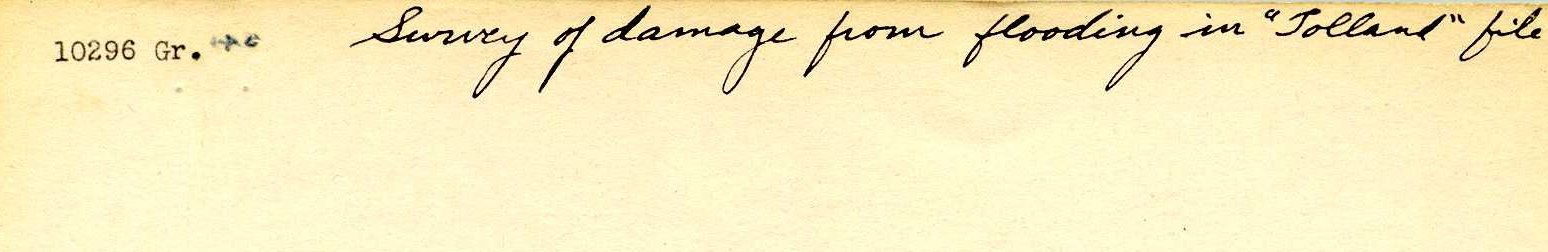 10296 Gr. Survey of damage from flooding in "Tolland" file